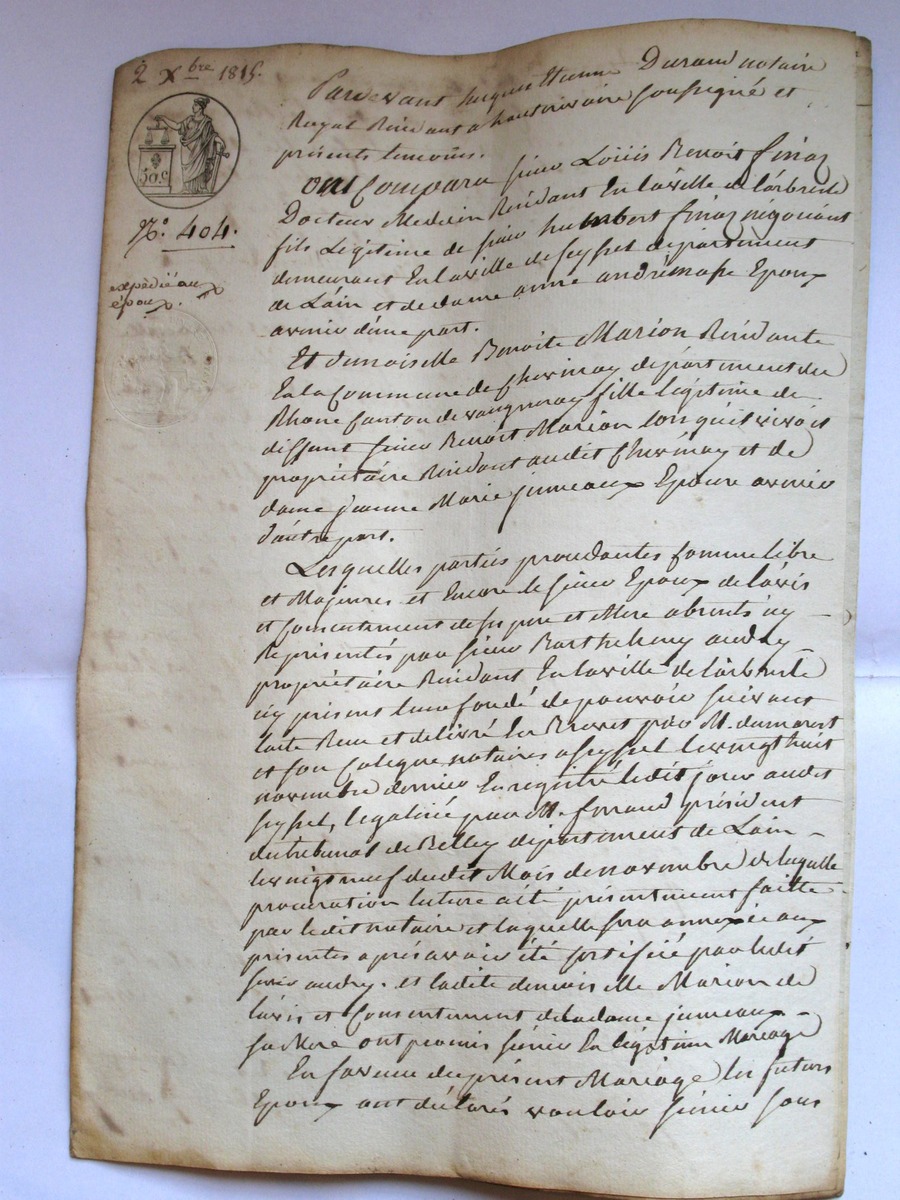 2 Xbre 1815.
50 c
N.° 404.
expédié aux
époux.
Pardevant hugues Etienne Durand notaire
Royal Résidant a hauterivoire soussigné et
présents temoins.
Ont Comparu sieur Loüis Benoit finaz
Docteur Medecin Résidant En la ville de Larbresle
fils Légitime de sieur humbert finaz négociant
demeurant En la ville de seyssel département
de Lain et de dame anne andrémasse Epoux
avenir d'une part.
Et demoiselle Benoite Marion Résidante
En la Commune de Chevinay département du
Rhone Canton de vaugneray fille legitime de
deffunt sieur Benoit Marion lorsquil vivoit
propriétaire Résidant audit Chevinay et de
dame jeanne Marie jumeaux Epouse avenir
d'autre part.
Lesquelles parties procedantes Comme libre
et Majeures et Encore le sieur Epoux de lavis
et Consentement de ses pere et Mere absents icy
Représentés par sieur Barthelemy audry
propriétaire Résidant En la ville de Larbresle
icy présent leur fondé de pouvoir suivant
lacte Recu et délivré En Brevet par M. dumarest
et son Colegue notaires a seyssel le vingt huit
novembre dernier Enregistré ledit jour audit
seyssel, legalisé par M. président
du tribunal de Belley département de Lain
le vingt neuf dudit Mois de novembre de laquelle
procuration lecture a été présentement faitte
par ledit notaire et laquelle sera annexée aux
présentes après avoir été certifiée par ledit
sieur audry. et ladite demoiselle Marion de
lavis et Consentement de la dame jumeaux
sa Mere ont promis s'unir En légitime Mariage
En faveur du présent Mariage les futurs
Epoux ont déclarés vouloir s'unir sous